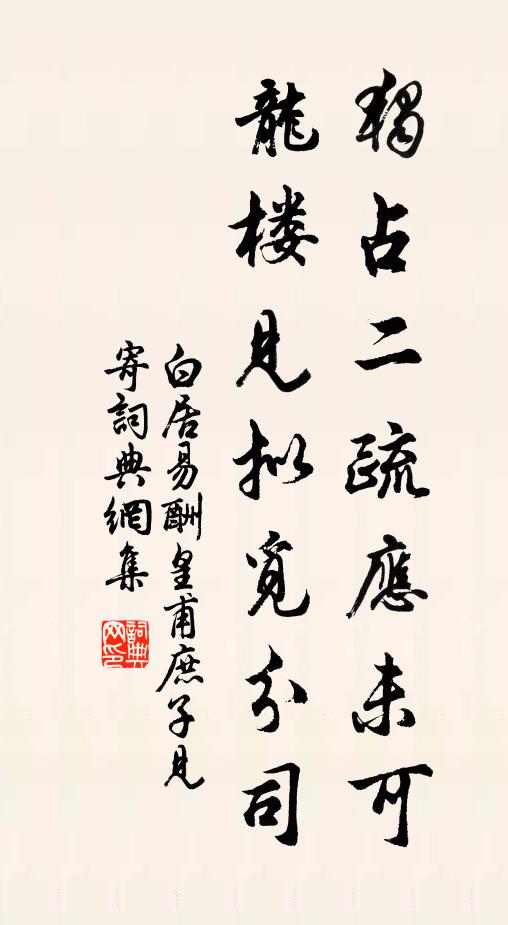 獨占二疏應未可
龍楼見拟覓分司
白居易酬皇甫庶子見
寄詞典網集
詞典网印